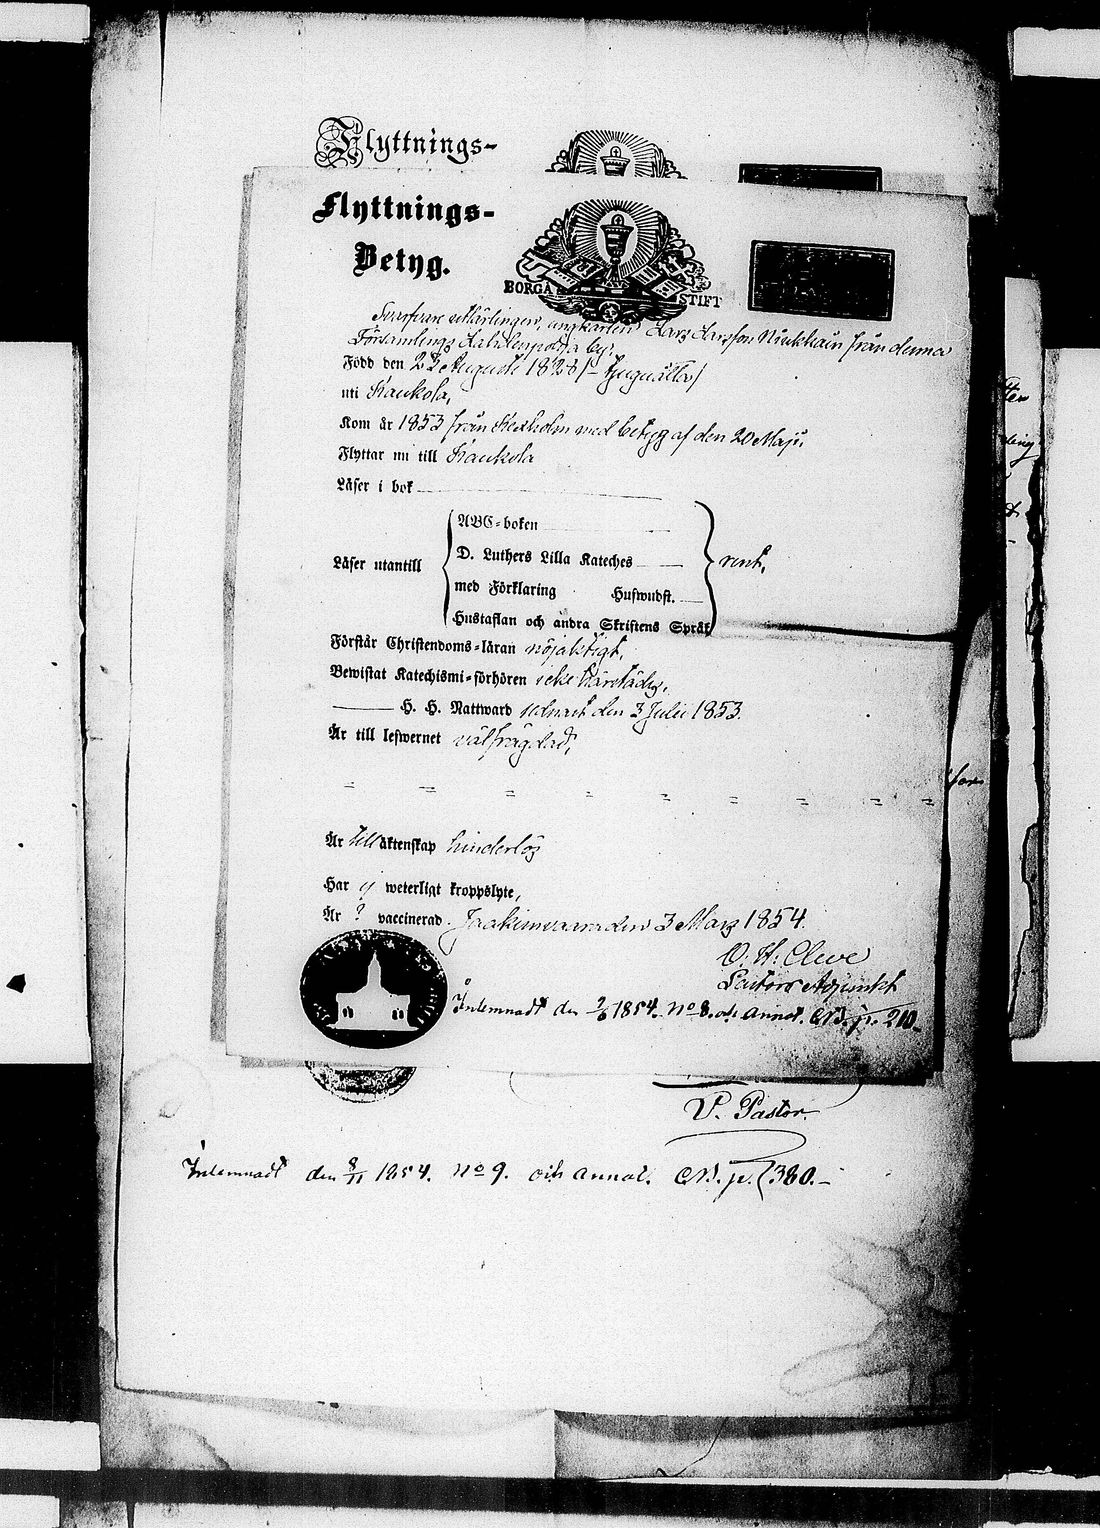 Flyttnings-
Flyttnings-
Betyg.
BORGÅ STIFT
Svarfvare Lärlingen, ungkarlen Lars Larsson från denna
Församlings by,
Född den 23 Augusti 1828 /-tjuguåtta/
uti Kaukola,
Kom år 1853 från Kexholm med betyg af den 20 Maji,
Flyttar nu till Kaukola
Läser i bok
Läser utantill
ABC-boken
D. Luthers Lilla Kateches
med Förklaring Hufwudst.
Hustaflan och andra Skriftens Språk
rent,
Förstår Christendoms-läran nöjaktigt,
Bewistat Katechismi-förhören icke härstädes,
H. H. Nattward sednast den 3 Julii 1853.
Är till lefwernet välfrägdad,
for
Är till äktenskap hinderlös
Har ej weterligt kroppslyte,
Är ? vaccinerad. Jaakimvaara den 3 Mars 1854.
O. H: Cleve
Pastors Adjunkt
Inlemnadt den 2/6 1854. No 8. och annot. CB. p. 210.
V. Pastor.
Inlemnadt den 8/11 1854. No 9. och annot. CB. p. 380.-